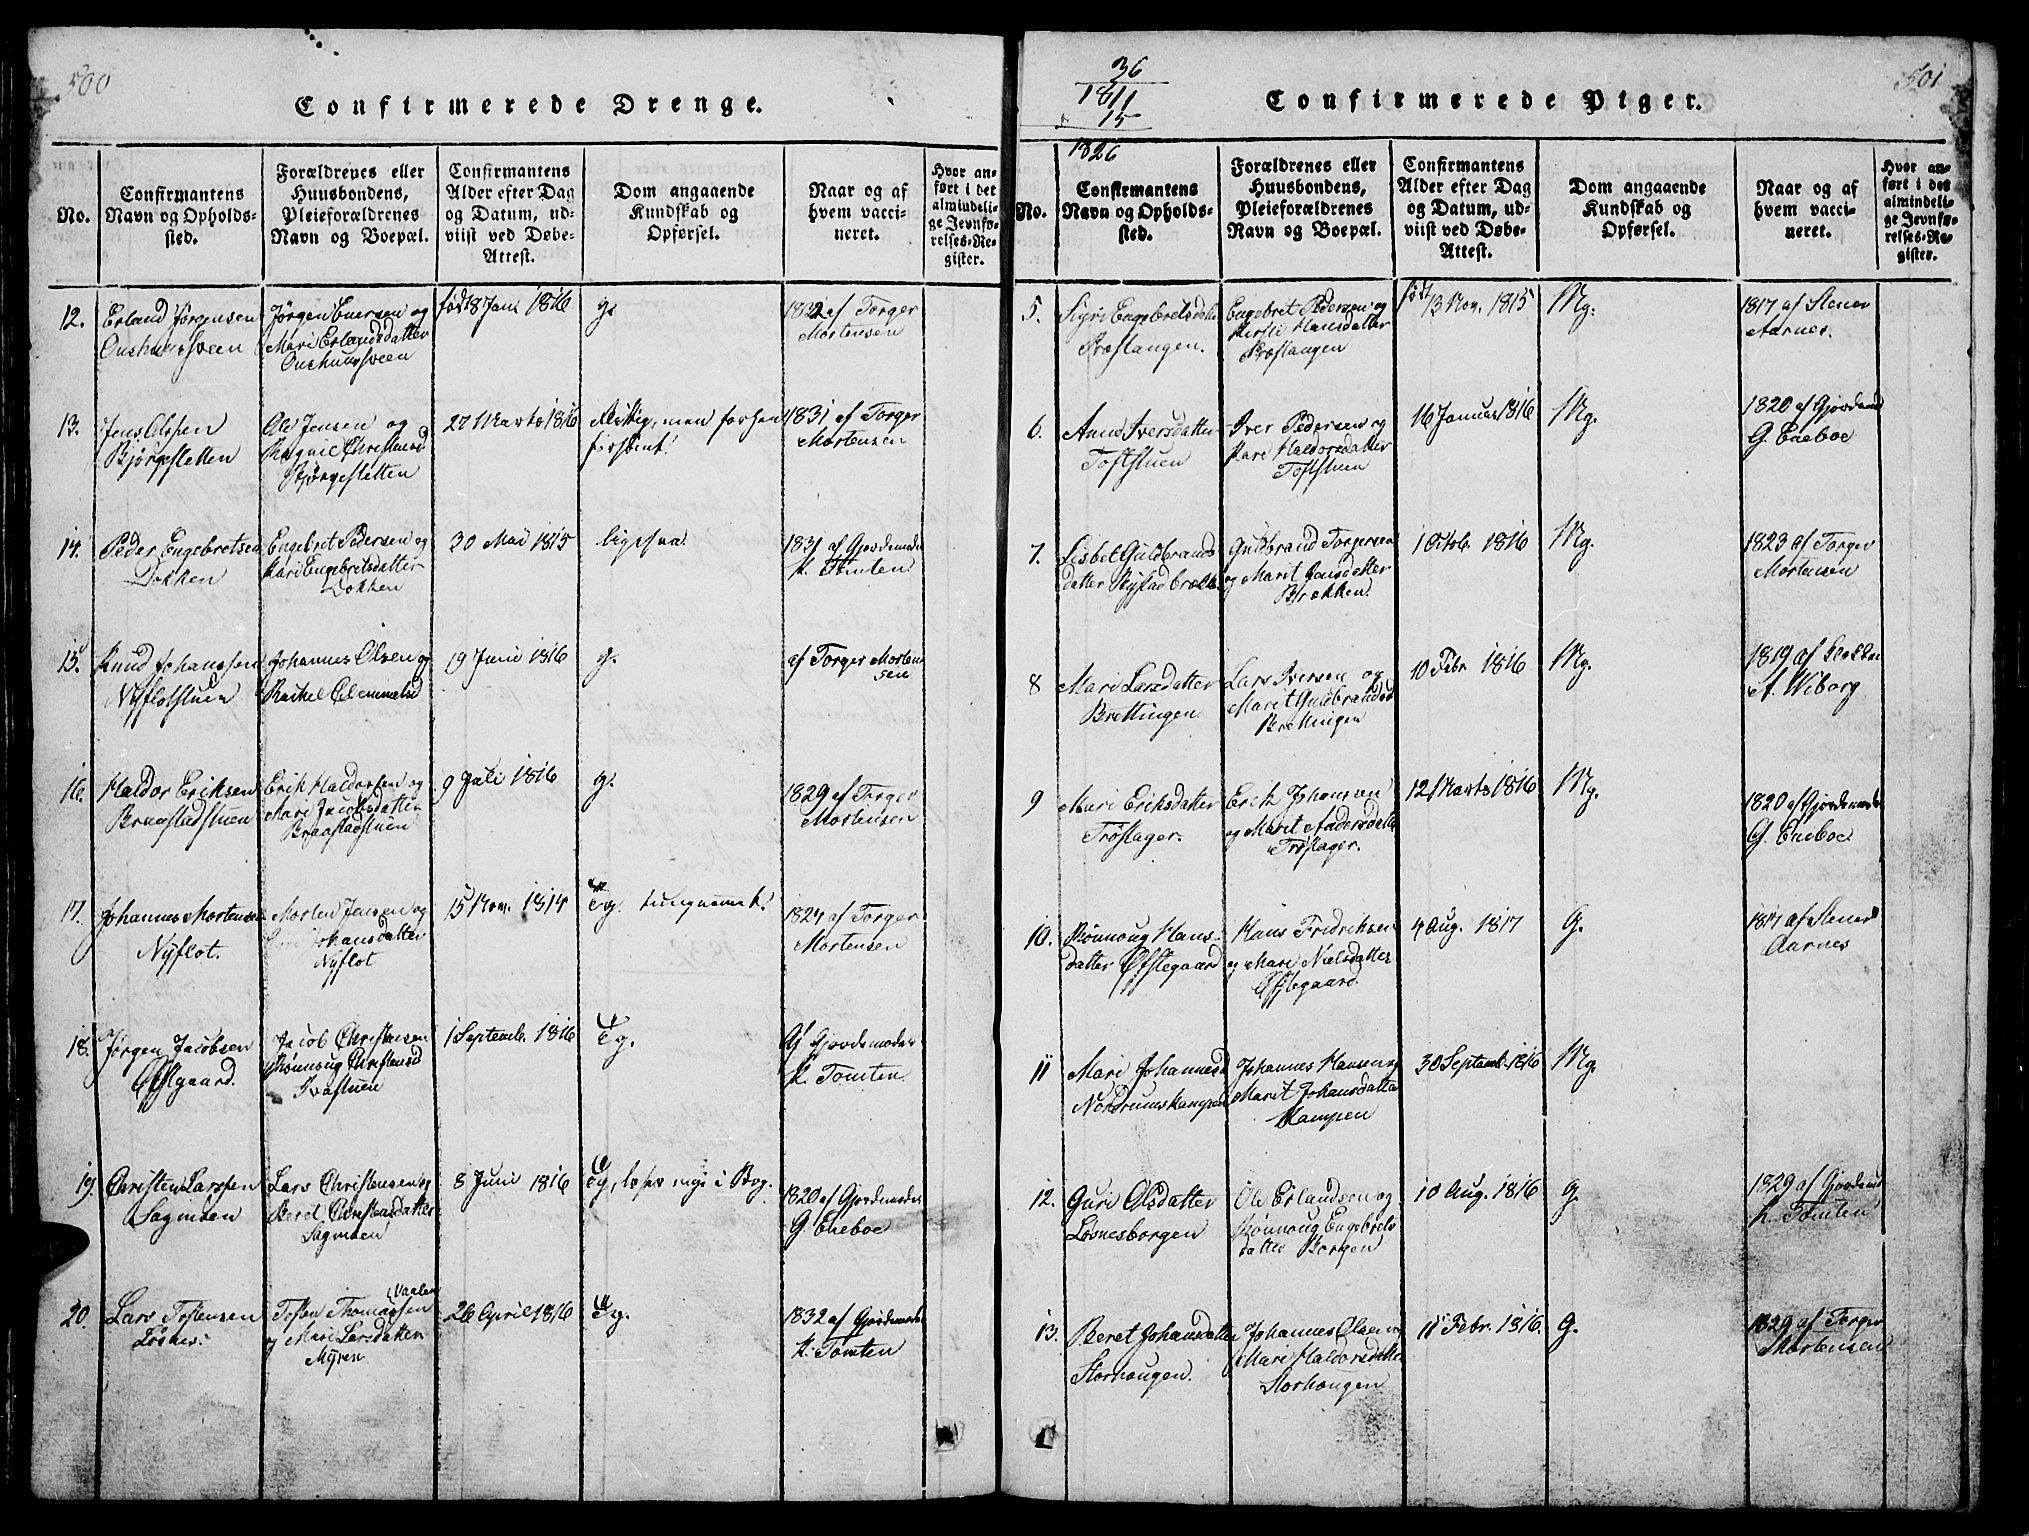 500
Confirmerede Drenge.
No.
Confirmantens
Navn og Opholds-
sted.
Forældrenes eller
Huusbondens,
Pleieforældrenes
Navn og Boepæl.
Confirmantens
Alder efter Dag
og Datum, ud-
viist ved Døbe-
Attest.
Dom angaaende
Kundskab og
Opførsel.
Naar og af
hvem vacci-
neret.
Hvor an-
ført i det
almindeli-
ge Jevnfø-
relses-Re-
gister.
12.
Erland Jörgensen
Jörgen Iversen og
Mari Erlandsdatter
født 18 Juni 1816
g.
1832 af Torger
Mortensen
13.
Jens Olssen
Bjørgesletten
Ole Jensen og
Bjørgesletten
27 Marts 1816
1831 af Torger
Mortensen
14.
Peder Engebretsen
Dokken
Engebret Pedersen og
Kari Engebretsdatter
Dokken
30 Mai 1815
ligesaa
1831 af Gjordemoder
K. Tomten
15.
Knud Johanssen
Nyflotstuen
Johannes Olsen og
Rachel Clemmetsd
19 Juni 1816
g.
af Torger Morten
sen
16.
Haldor Eriksen
Braastadstuen
Erik Haldorsen og
Mari Jacobsdatter
Braastadstuen
9 Juli 1816
g.
1829 af Torger
Mortensen
17.
Johannes Mortensen
Nyflot.
Morten Jensen og
Johansdatter
Nyflot
15 Nov. 1814
Tg. tungnemt.
1827 af Torger
Mortensen
18.
Jørgen Jacobsen
Øfstgaard.
Jacob Christensen
Rønnoug Christensd
1 Septemb. 1816
Tg.
af Gjordemoder
K. Tomten
19.
Christen Larssen
Sagmoen
Lars Christensen og
Beret Christensdatter
Sagmoen
8 Juni 1816
Tg, læser nye i Bog.
1820 af Gjordemoder
G. Eneboe
20.
Lars Tostensen
Losnes.
Tosten Thomassen
Vaalen
og Mari Larsdatter
Myren
26 April 1816
Tg.
1832 af Gjordemoder
K. Tomten
36
1811
15
1826
501
Confirmerede Piger.
No.
Confirmantens
Navn og Opholds-
sted.
Forældrenes eller
Huusbondens,
Pleieforældrenes
Navn og Boepæl.
Confirmantens
Alder efter Dag
og Datum, ud-
viist ved Døbe-
Attest.
Dom angaaende
Kundskab og
Opførsel.
Naar og af
hvem vacci-
neret.
Hvor an-
ført i det
almindeli-
ge Jevnfø-
relses-Re-
gister.
5.
Sigri Engebretsdatter
Præstangen.
Engebret Pedersen og
Kirsti Hansdatter
Præstangen
født
13 Nov. 1815
Mg.
1817 af Stener
Aarnes.
6.
Anne Iversdatter
Toftstuen
Iver Pedersen og
Kari Haldorsdatter
Toftstuen
16 Januar 1816
Mg.
1820 af Gjordemo
G. Eneboe
7.
Lisbet Guldbrands
datter
Guldbrand Torgersen
og Marit Jonsdatter
Brækken
1 Octob. 1816
Mg.
1823 af Torger
Mortensen
8
Mari Larsdatter
Brettingen
Lars Iversen og
Marit Guldbrandsd
Brettingen
10 Febr 1816
Mg.
1819 af Klokker
A. Wiborg
9
Mari Eriksdatter
Trøstager.
Erik Johansen
og Marit Andersdatter
Trøstager.
12 Marts 1816
Mg.
1820 af Gjordemoder
G. Eneboe
10.
Rönnoug Hans-
datter Øfstegaard
Hans Fredriksen
og Mari Nielsdatter
Øfstegaard
4 Aug. 1817
G.
1817 af Stener
Aarnes
11
Mari Johannesd
Nordrumskampen
Johannes Hansen og
Marit Johansdatter
Kampen
30 Septemb. 1816
Mg.
12.
Guri Olsdatter
Losnesborgen
Ole Erlandsen og
Rønnoug Engebrets
datter Borgen
10 Aug. 1816
g.
1829 af Gjordemod
K. Tomten
13.
Beret Johansdatter
Storhougen.
Johannes Olsen og
Mari Haldorsdatter
Storhougen
11 Febr. 1816.
G.
1829 af Torger
Mortensen